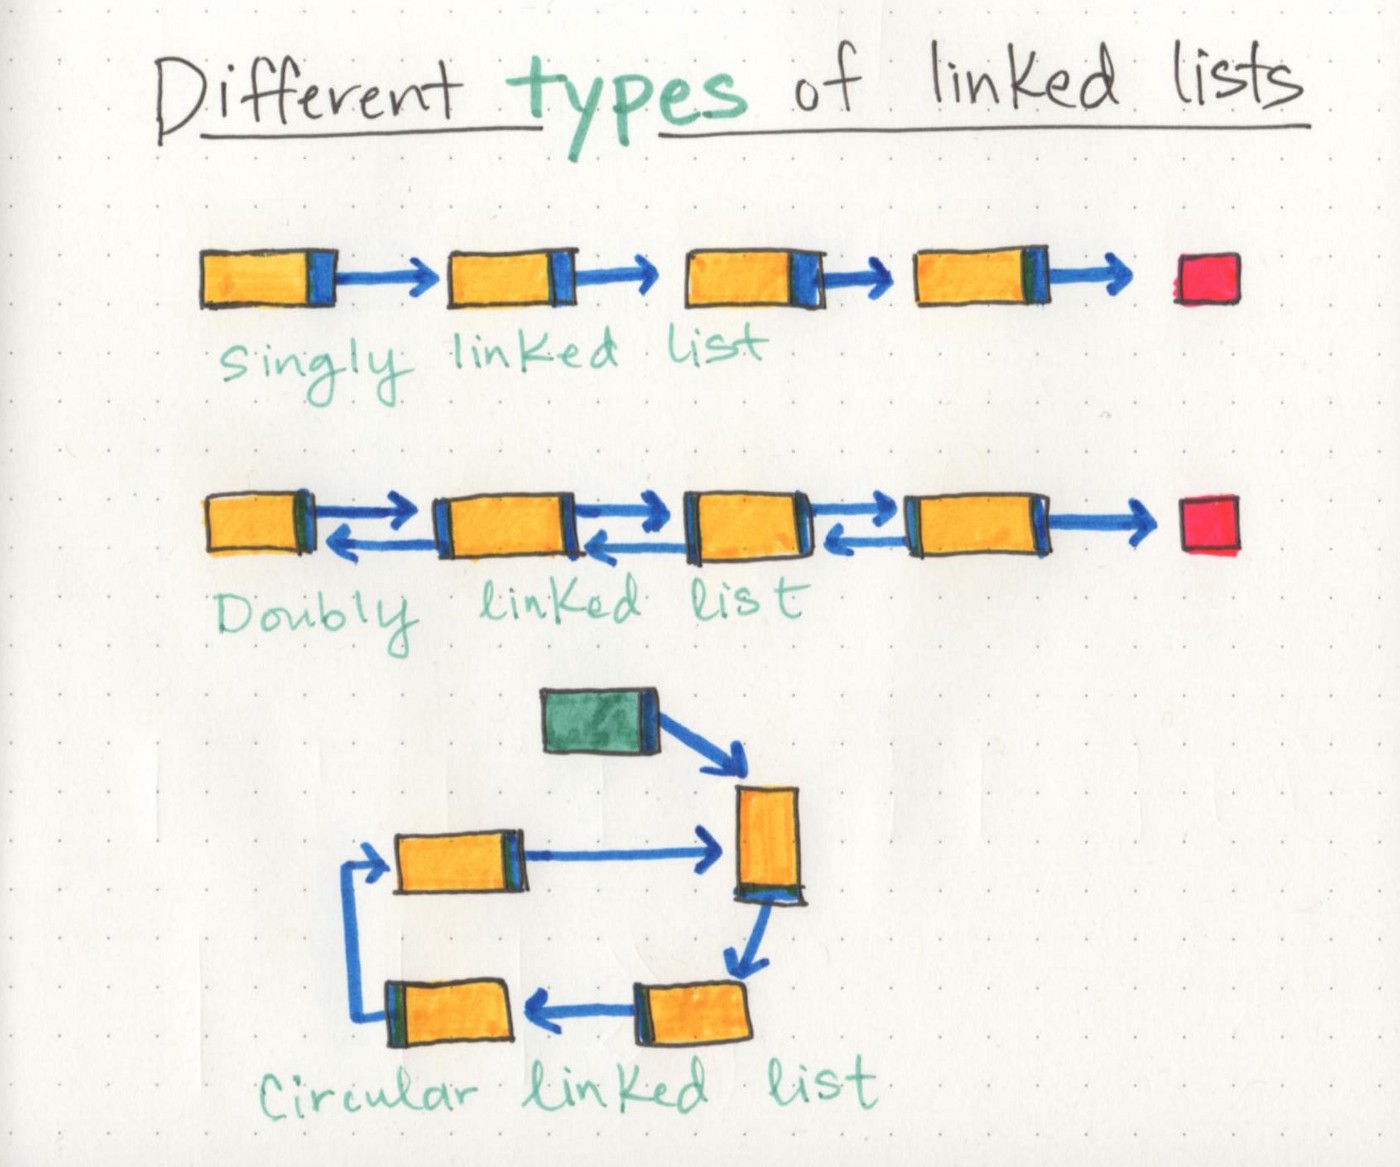 Different types of linked lists
Singly linked list
Doubly linked list
Circular linked list